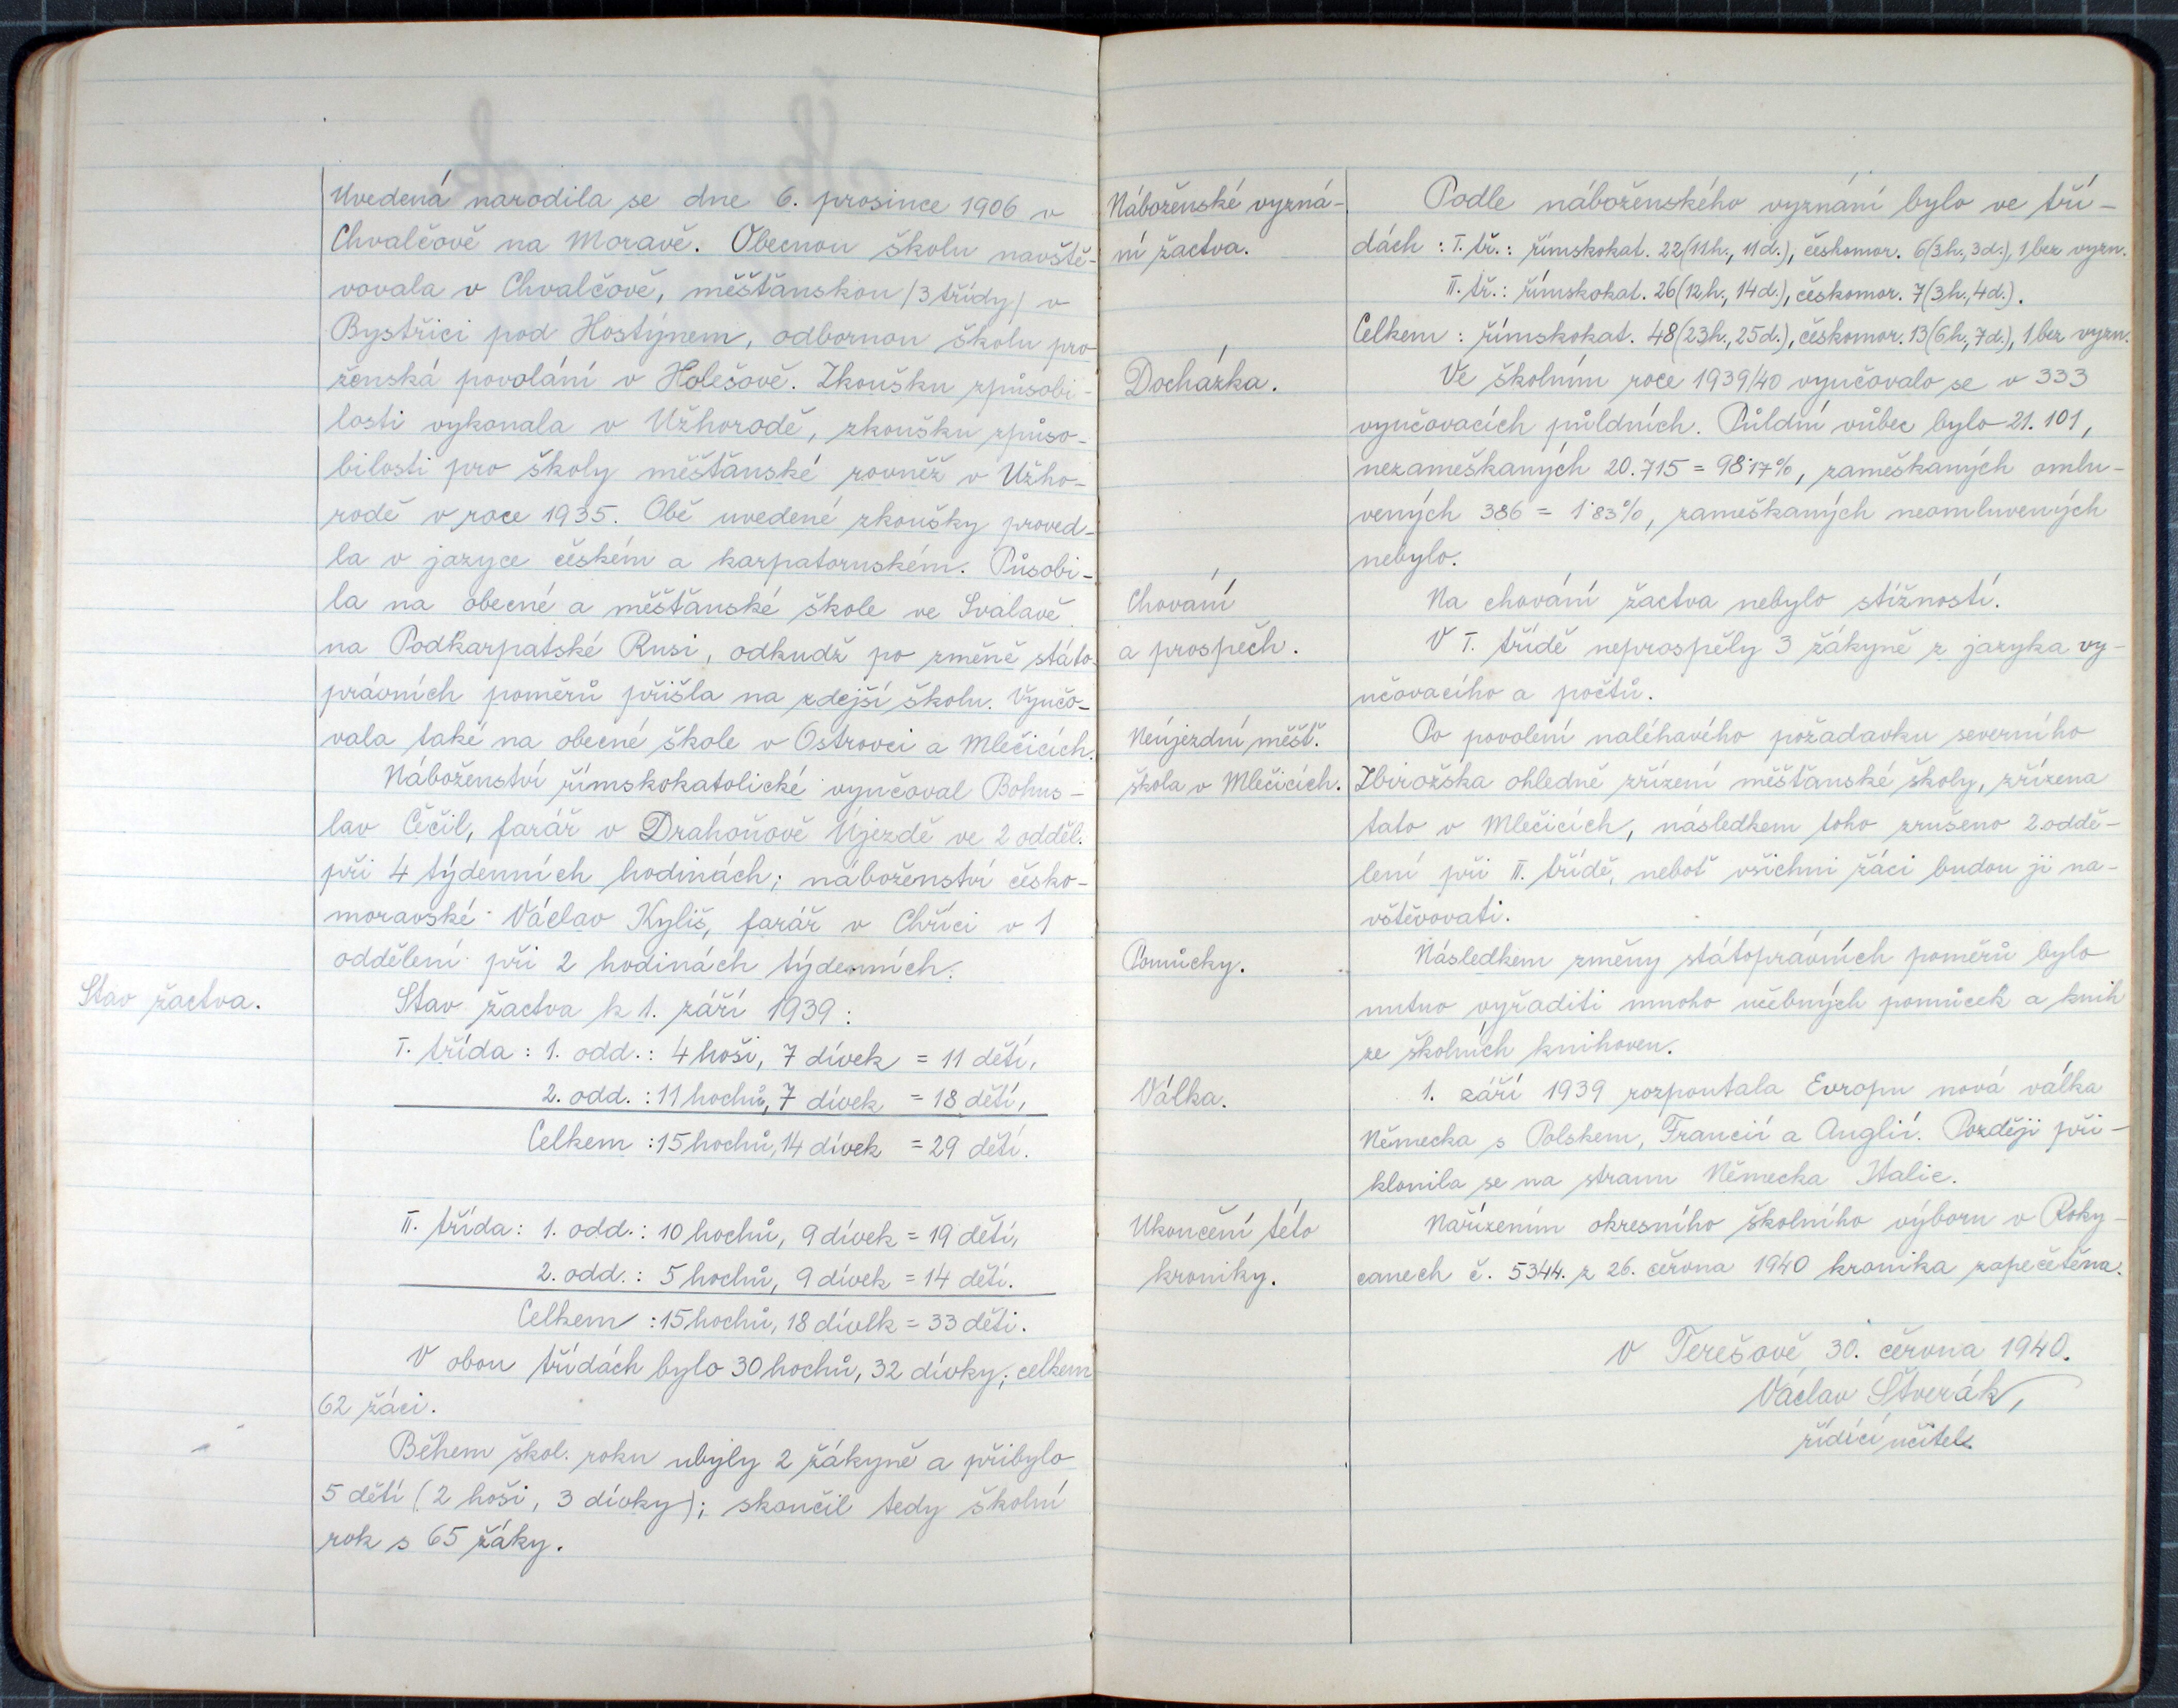 Uvedená narodila se dne 6. prosince 1906 v
Chvalčově na Moravě. Obecnou školu navště-
vovala v Chvalčově, měšťanskou /3 třídy/ v
Bystřici pod Hostýnem, odbornou školu pro
ženská povolání v Holešově. Zkoušku způsobi-
losti vykonala v Užhorodě, zkoušku způso-
bilosti pro školy měšťanské rovněž v Užho-
rodě v roce 1935. Obě uvedené zkoušky proved-
la v jazyce českém a karpatoruském. Působi-
la na obecné a měšťanské škole ve Svalavě
na Podkarpatské Rusi, odkudž po změně státo-
právních poměrů přišla na zdejší školu. Vyučo-
vala také na obecné škole v Ostrovci a Mlečicích.
Náboženství římskokatolické vyučoval Bohus-
lav Čečil, farář v Drahoňově Újezdě ve 2 odděl.
při 4 týdenních hodinách; náboženství česko-
moravské Václav Kyliš, farář v Chříci v 1
oddělení při 2 hodinách týdenních.
Stav žactva.
Stav žactva k 1. září 1939:
I. třída: 1. odd.: 4 hoši, 7 dívek = 11 dětí,
2. odd.: 11 hochů, 7 dívek = 18 dětí,
Celkem: 15 hochů, 14 dívek = 29 dětí.
II. třída: 1. odd.: 10 hochů, 9 dívek = 19 dětí,
2. odd.: 5 hochů, 9 dívek = 14 dětí.
Celkem: 15 hochů, 18 dívek = 33 dětí.
V obou třídách bylo 30 hochů, 32 dívky; celkem
62 žáci.
Během škol. roku ubyly 2 žákyně a přibylo
5 dětí (2 hoši, 3 dívky); skončil tedy školní
rok s 65 žáky.
Náboženské vyzná-
ní žactva.
Podle náboženského vyznání bylo ve tří-
dách: I. tř.: římskokat. 22 (11h., 11d.), českomor. 6 (3h., 3d.), 1 bez vyzn.
II. tř.: římskokat. 26 (12h., 14d.), českomor. 7 (3h., 4d.).
Celkem: římskokat. 48 (23h., 25d.), českomor. 13 (6h., 7d.), 1 bez vyzn.
Docházka.
Ve školním roce 1939/40 vyučovalo se v 333
vyučovacích půldních. Půldní vůbec bylo 21.101,
nezameškaných 20.715 = 98·17%, zameškaných omlu-
vených 386 = 1·83%, zameškaných neomluvených
nebylo.
Chování
a prospěch.
Na chování žactva nebylo stížností.
V I. třídě neprospěly 3 žákyně z jazyka vy-
učovacího a počtů.
Neújezdní měšť.
škola v Mlečicích.
Po povolení naléhavého požadavku severního
Zbirožska ohledně zřízení měšťanské školy, zřízena
tato v Mlečicích, následkem toho zrušeno 2. oddě-
lení při II. třídě, neboť všichni žáci budou ji na-
vštěvovati.
Pomůcky.
Následkem změny státoprávních poměrů bylo
nutno vyřaditi mnoho učebných pomůcek a knih
ze školních knihoven.
Válka.
1. září 1939 rozpoutala Evropu nová válka
Německa s Polskem, Francií a Anglií. Později při-
klonila se na stranu Německa Italie.
Ukončení této
kroniky.
Nařízením okresního školního výboru v Roky-
canech č. 5344. z 26. června 1940 kronika zapečetěna.
V Terešově 30. června 1940.
Václav Štverák,
řídící učitel.